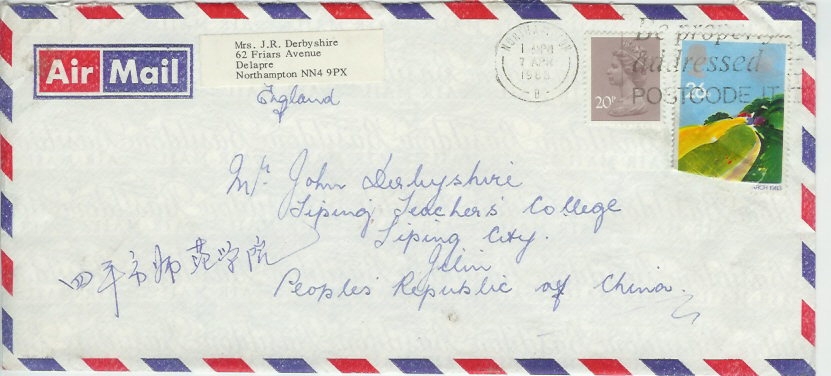 Air Mail
Mrs. J.R. Derbyshire
62 Friars Avenue
Delapre
Northampton NN4 9PX
England
NORTHAMPTON
7 APR
- B -
Be properly
addressed
POSTCODE IT
20P
Mr. John Derbyshire
Siping Teacher's College
Siping City.
Jilin
四平市师范学院
Peoples Republic of China.